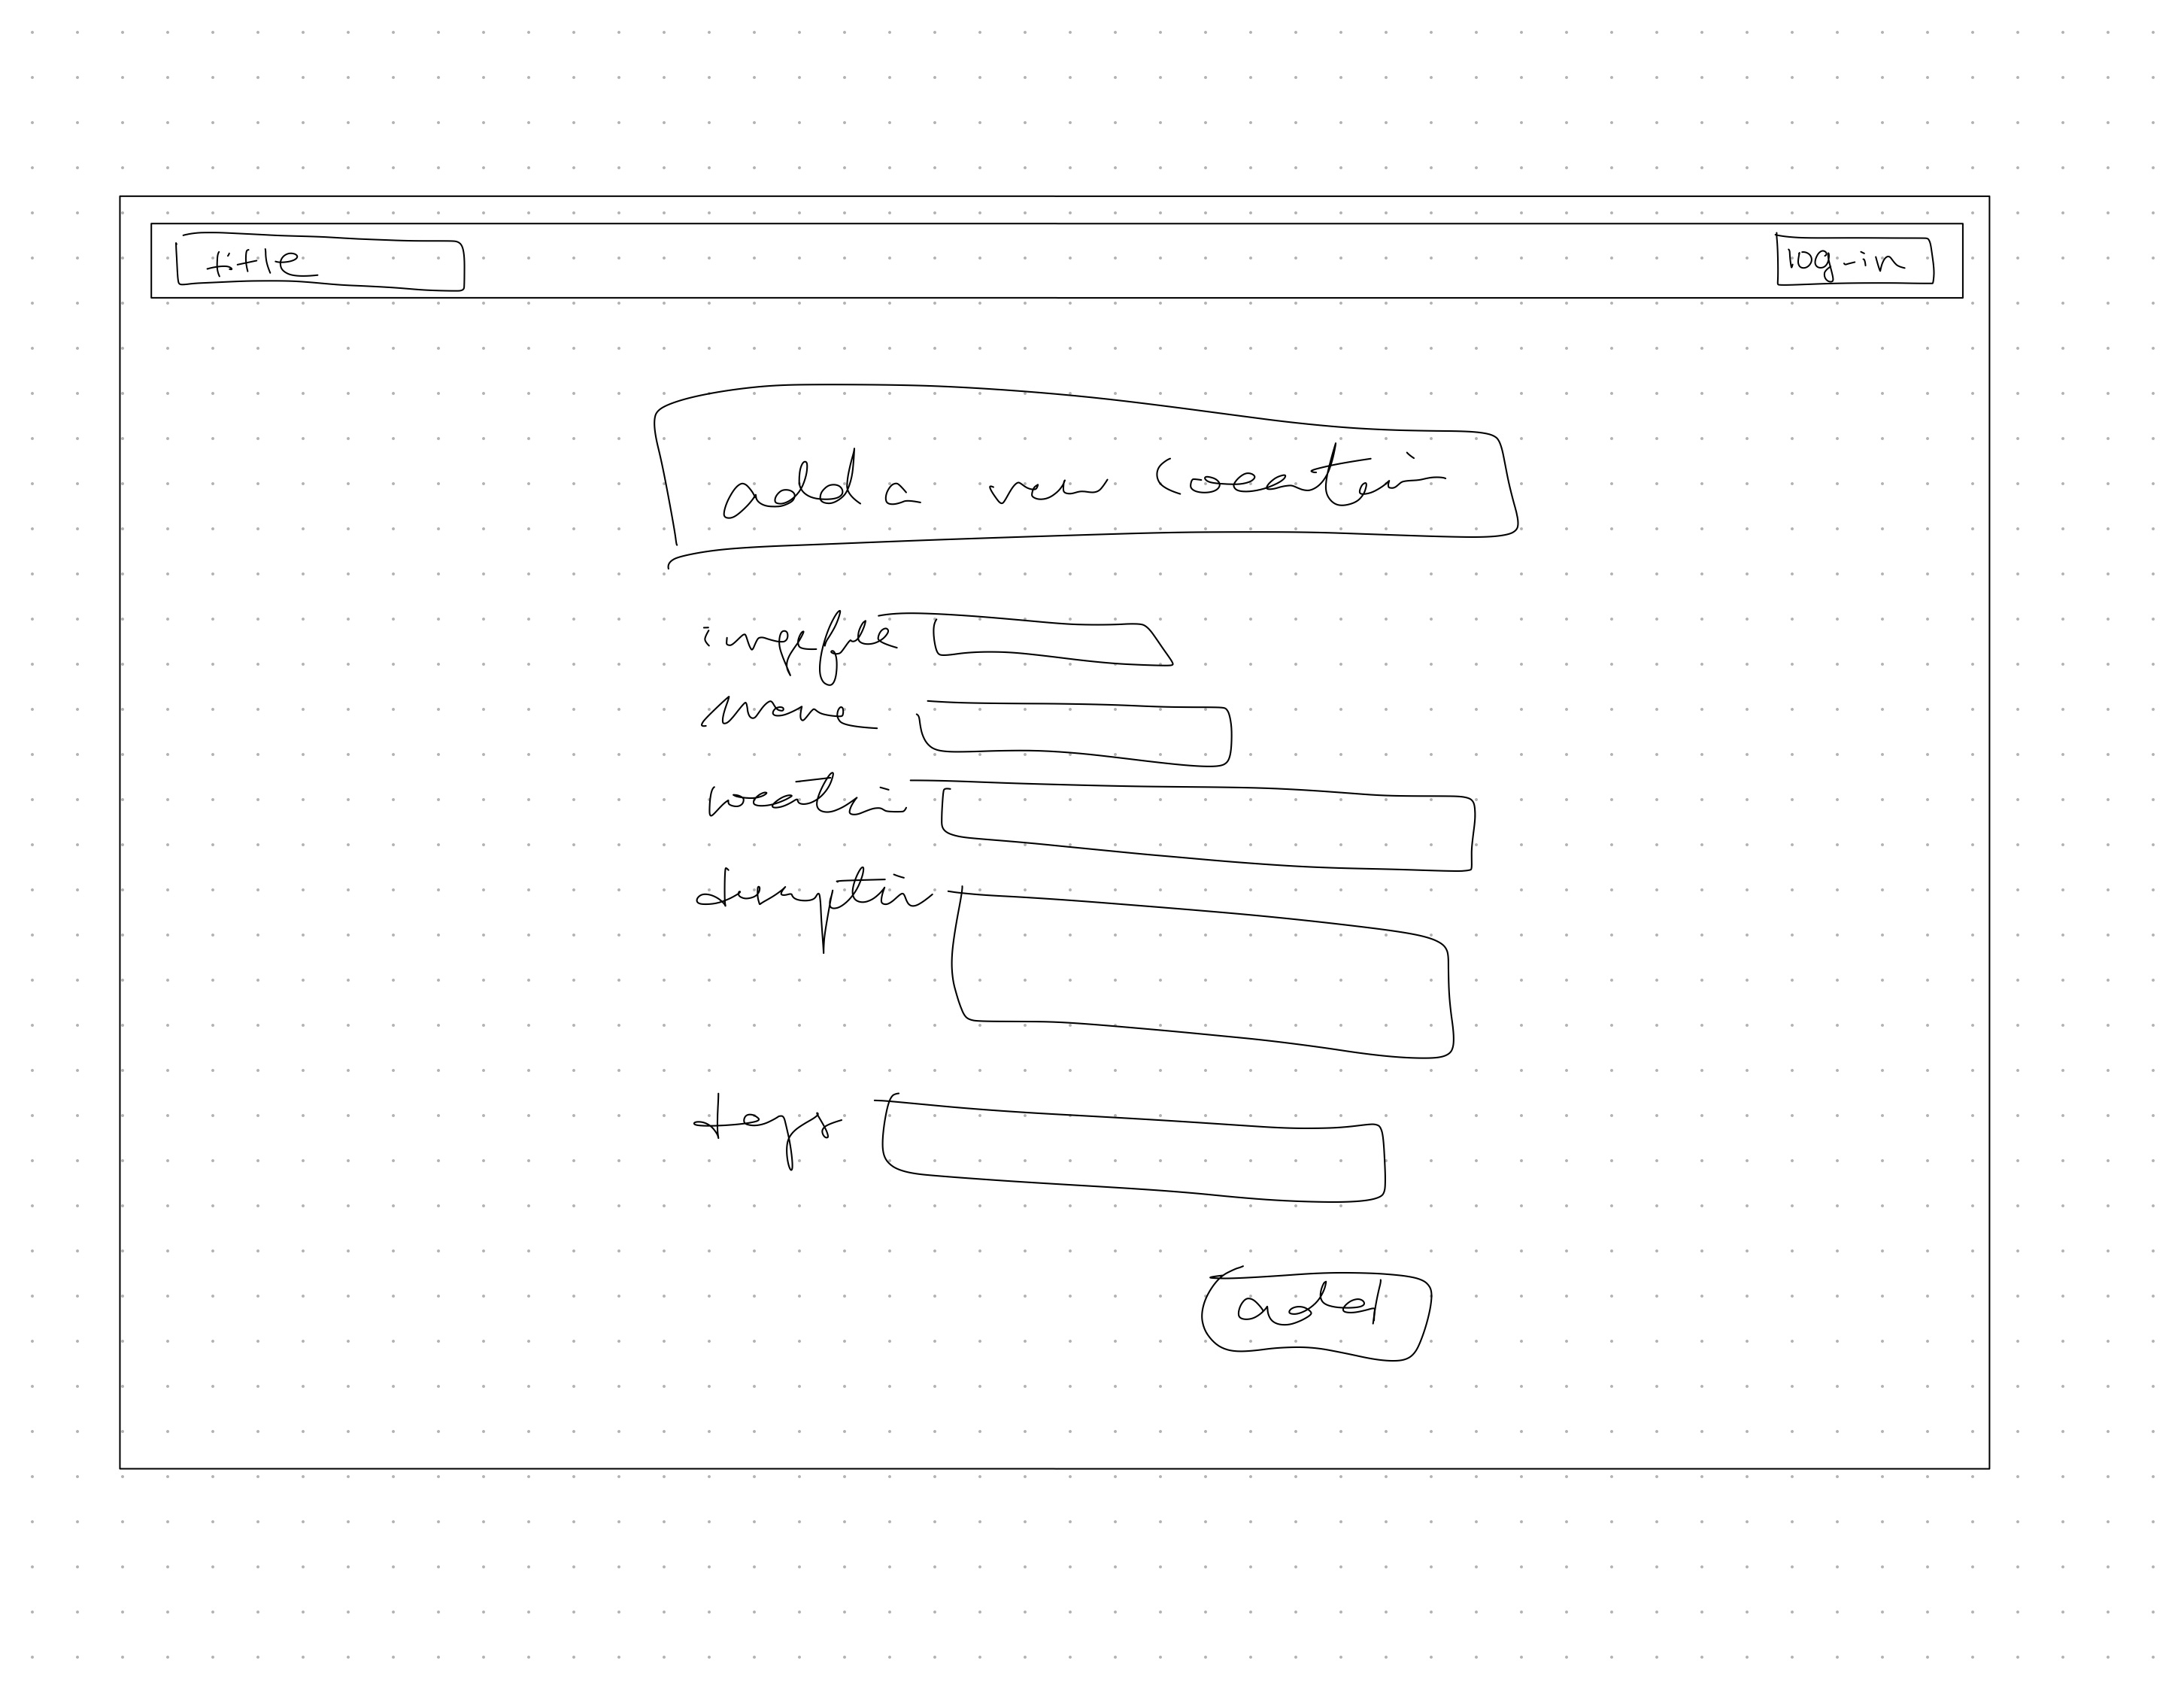 title
log-in
add a new location
image file
name
location
description
tags
add